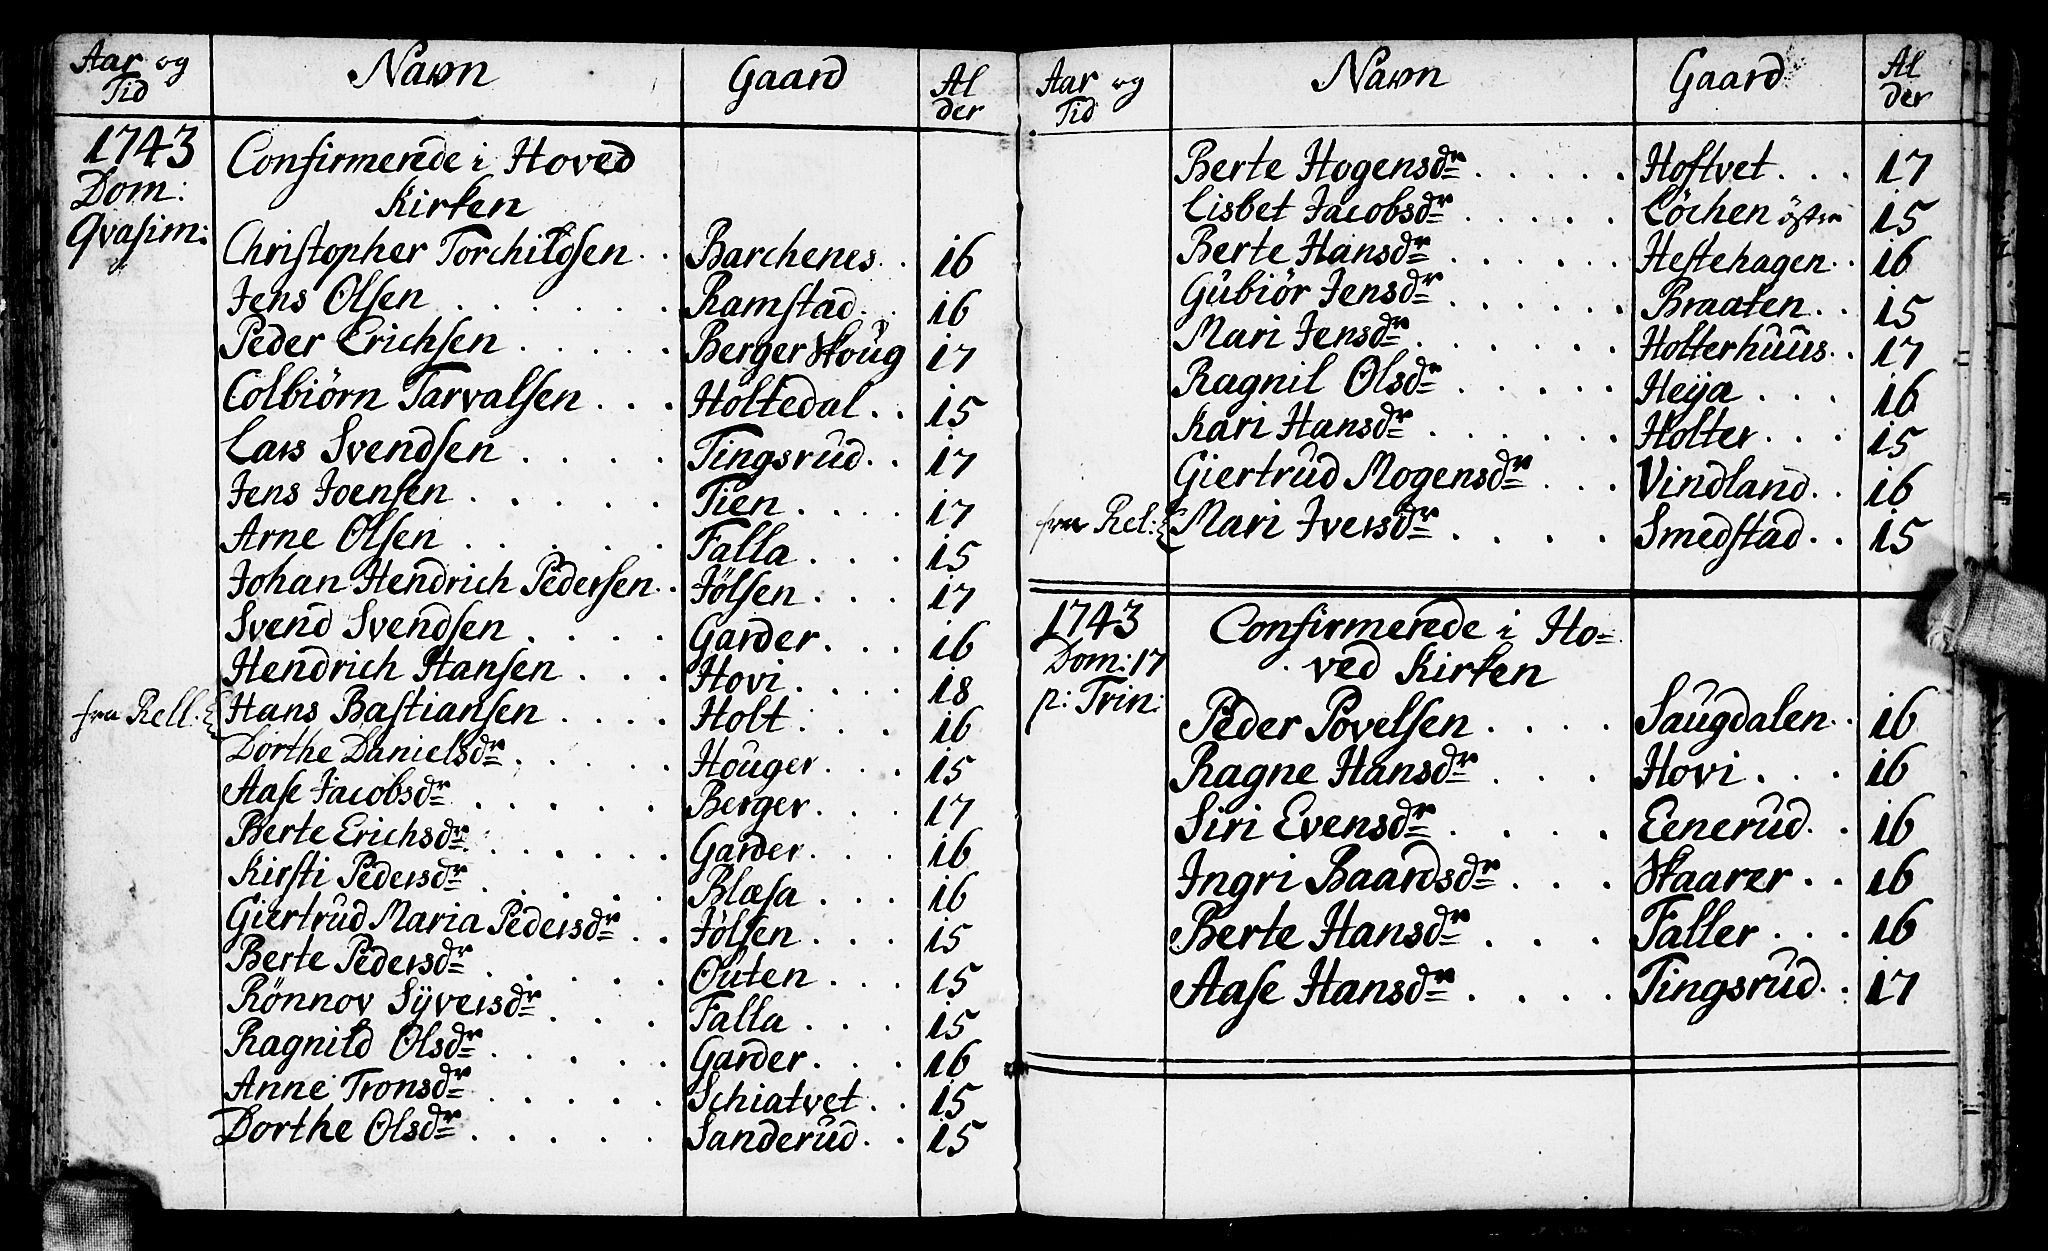 Aar og Tid Navn Gaard Al der
1743 Confirmerede i Hoved
Dom: Kirken
Qvasim: Christopher Torchildsen . . Barchenes . . 16
Jens Olsen . . . . . . Ramstad . . 16
Peder Erichsen . . . . . Berger Skoug 17
Colbiörn Tarvalsen . . . Holtedal . . 15
Lars Svendsen . . . . Tingsrud . . 17
Jens Joensen . . . . . Tien . . . . 17
Arne Olsen . . . . . Falla . . . 15
Johan Hendrich Pedersen . . Jölsen . . . 17
Svend Svendsen . . . . Garder . . . 16
Hendrich Hansen . . . Hovi . . . . 18
fra Rell: Hans Bastiansen . . . . Holt . . . 16
Dorthe Danielsdr . . . . . Houger . . . 15
Aase Jacobsdr . . . . . Berger . . . 17
Berte Erichsdr . . . . . . Garder . . . 16
Kirsti Pedersdr . . . . . Blæsa . . . 16
Giertrud Maria Pedersdr . . Jölsen . . . 15
Berte Pedersdr . . . . . Outen . . . 15
Rönnov Syversdr . . . Falla . . . 15
Ragnild Olsdr . . . . . Garder . . . 16
Anne Tronsdr . . . . . Schiatvet . . 15
Dorthe Olsdr . . . . . Sanderud . . 15
Aar og Tid Navn Gaard Al der
Berte Hogensdr . . . . . Hoftvet . . . 17
Lisbet Jacobsdr . . . . . Löchen östre 15
Berte Hansdr . . . . . . Hestehagen . . 16
Gubiör Jensdr . . . . . . Braaten . . 15
Mari Jensdr . . . . . . Holterhuus . . 17
Ragnil Olsdr . . . . . Heija . . . 16
Kari Hansdr . . . . . . Holter . . . 15
Giertrud Mogensdr . . . Vindland . . 16
fra Rel: Mari Iversdr . . . . Smedstad . . 15
1743 Confirmerede i Ho=
Dom: 17 ved Kirken
p: Trin: Peder Povelsen . . . . Saugdalen . . 16
Ragne Hansdr . . . Hovi . . . 16
Siri Evensdr . . . . Eenerud . . 16
Ingri Baardsdr . . . Skaarer . . 16
Berte Hansdr . . . Faller . . . 16
Aase Hansdr . . . . Tingsrud . . 17